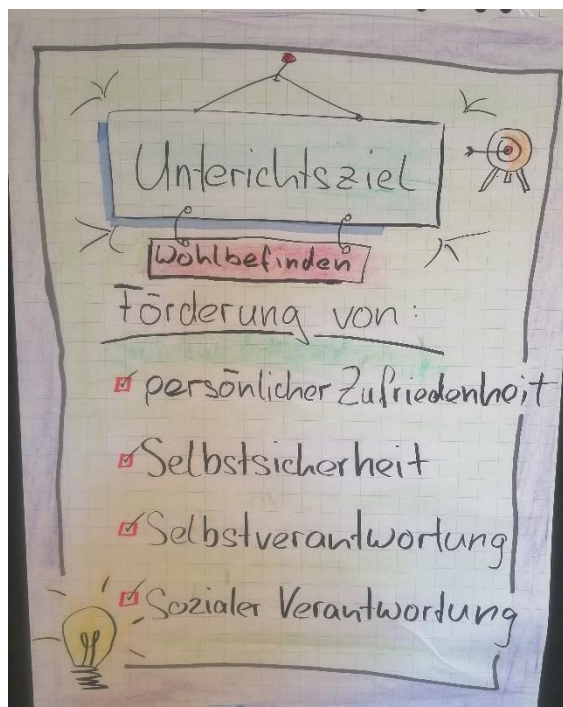 Unterichtsziel
Wohlbefinden
Förderung von:
persönlicher Zufriedenheit
Selbstsicherheit
Selbstverantwortung
Sozialer Verantwortung